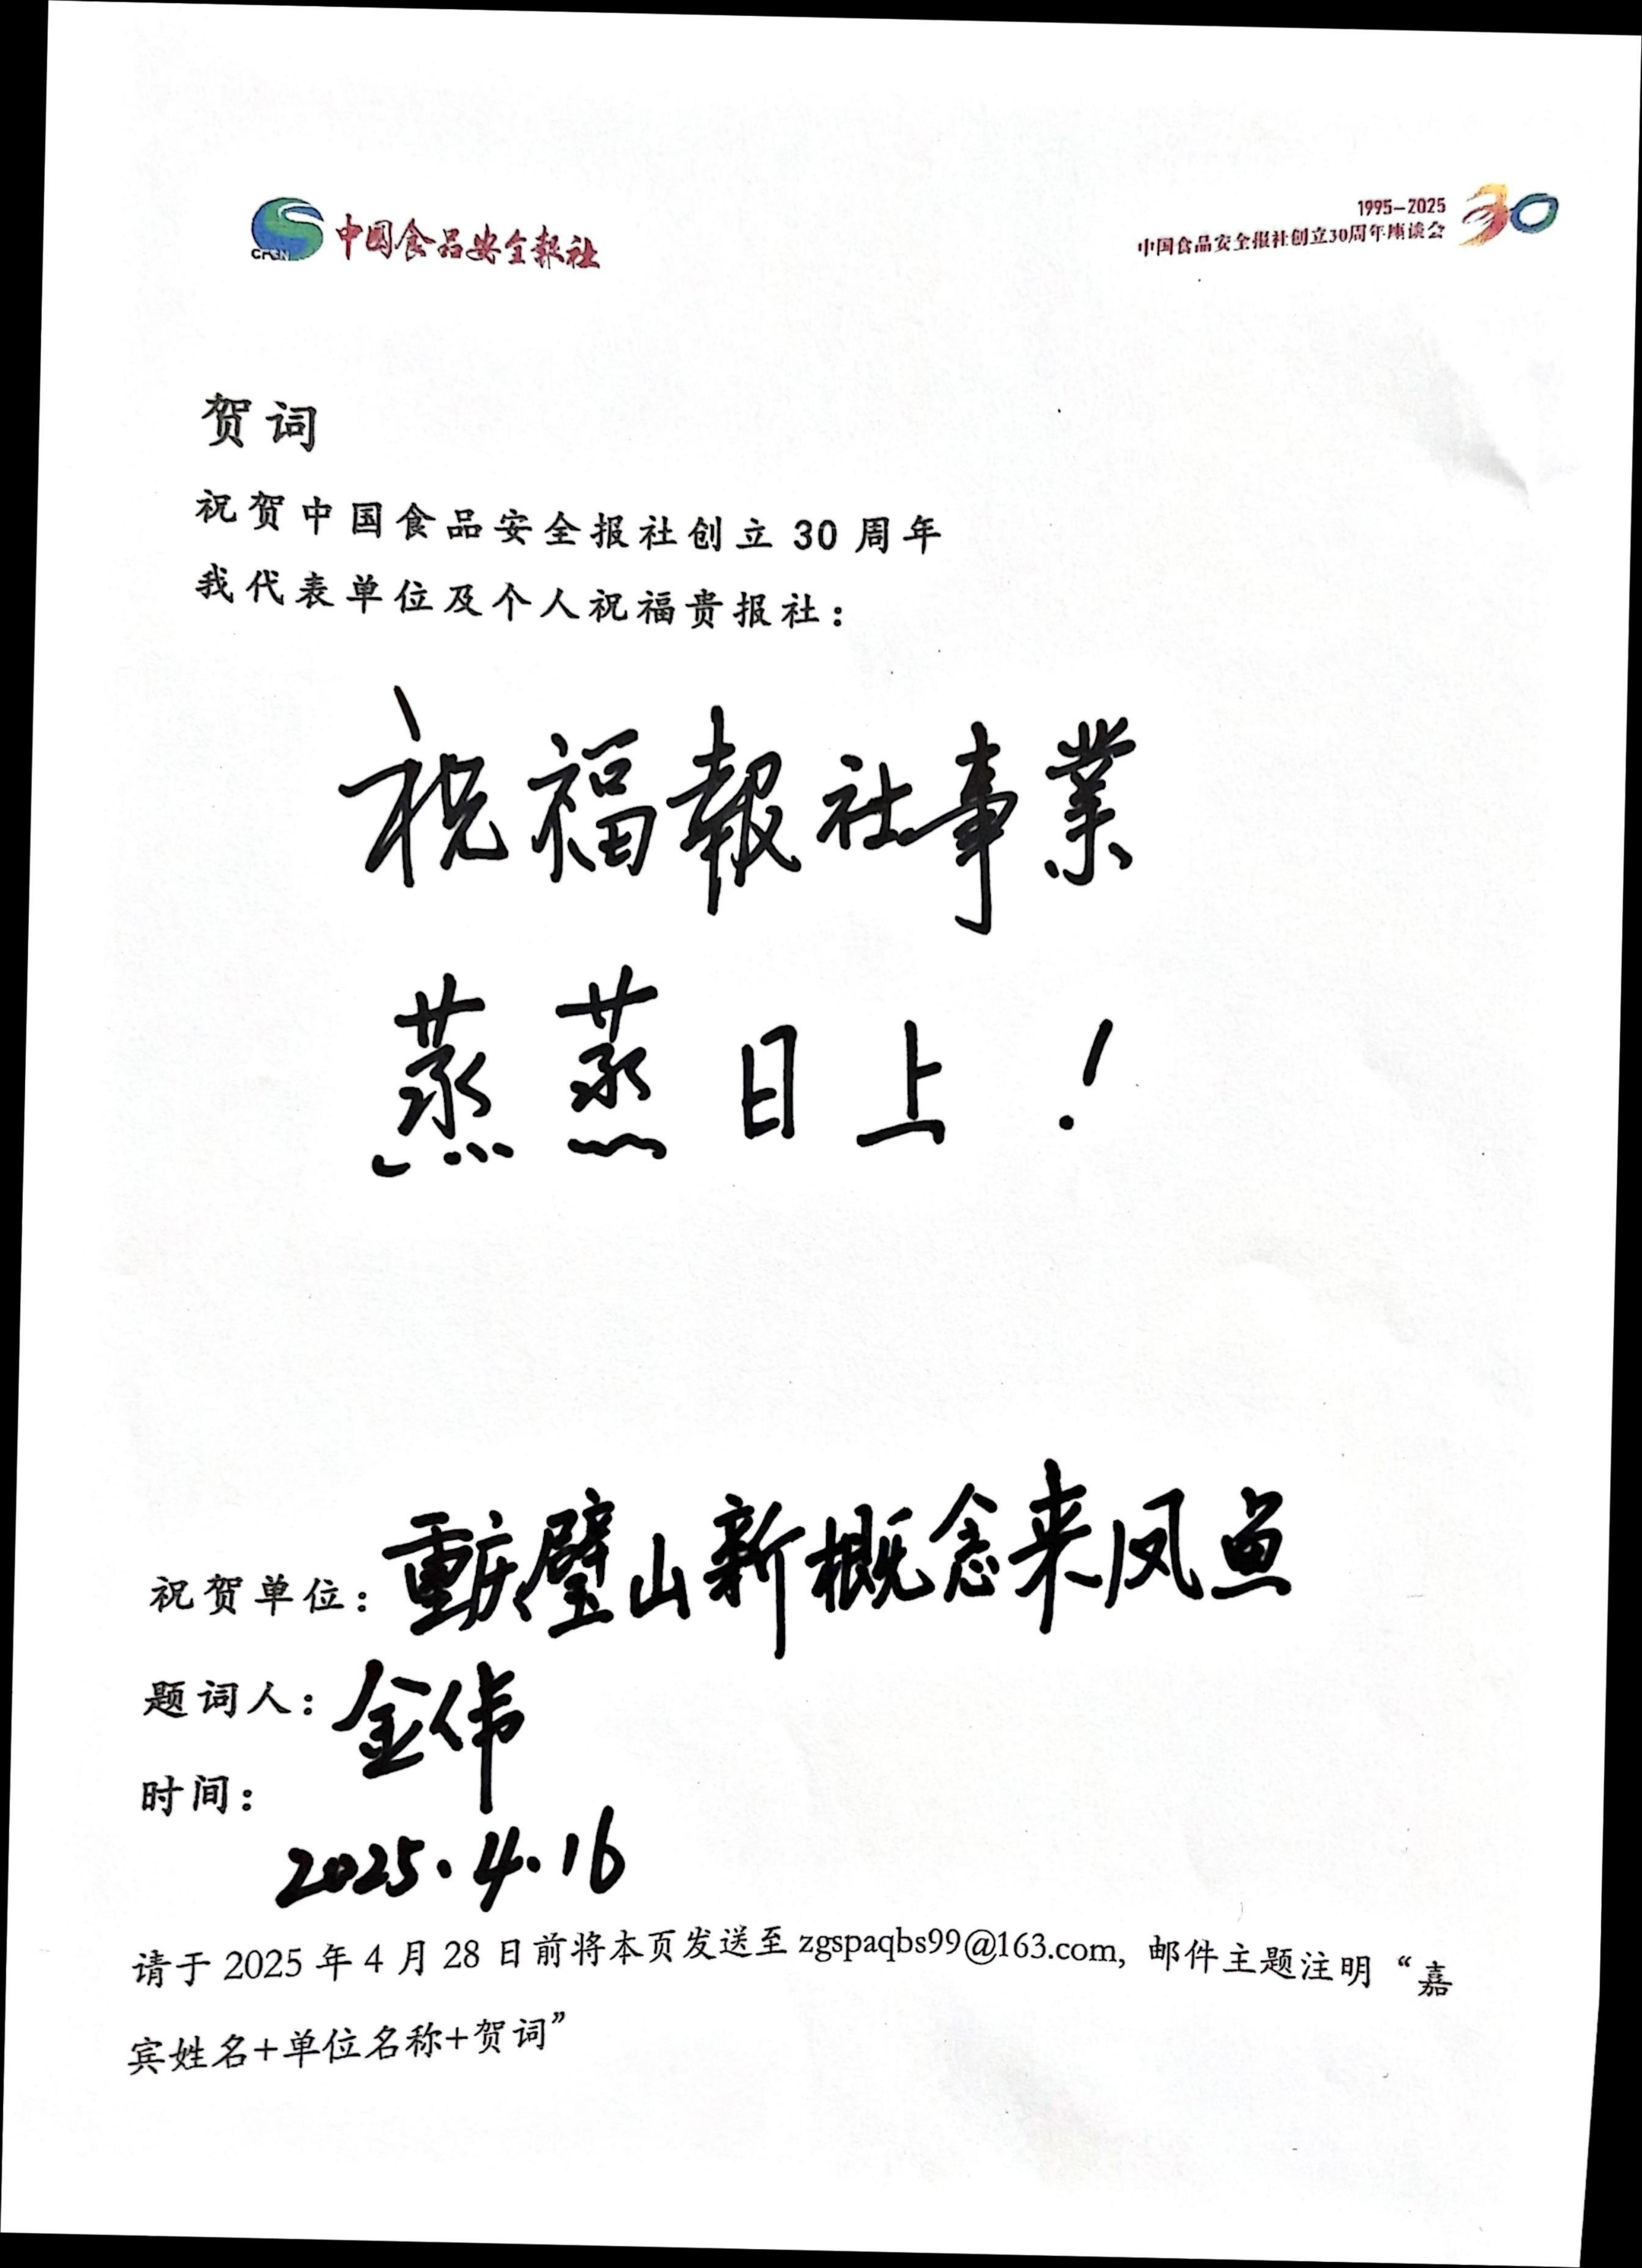 CFSN 中国食品安全報社
1995-2025
中国食品安全报社创立30周年座谈会
30
贺词
祝贺中国食品安全报社创立 30 周年
我代表单位及个人祝福贵报社：
祝福報社事業
蒸蒸日上！
祝贺单位：重庆璧山新概念来凤鱼
题词人：金伟
时间：
2025.4.16
请于 2025 年 4 月 28 日前将本页发送至 zgspaqbs99@163.com，邮件主题注明“嘉
宾姓名+单位名称+贺词”